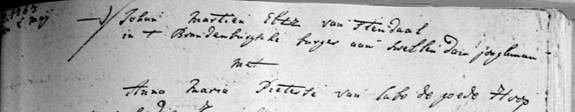 Johan Martien Eltz van Stendaal
in t Brandenburgsche burger aan Swellendam jongman
met
Anna Maria Pieterse van Cabo de goede Hoop